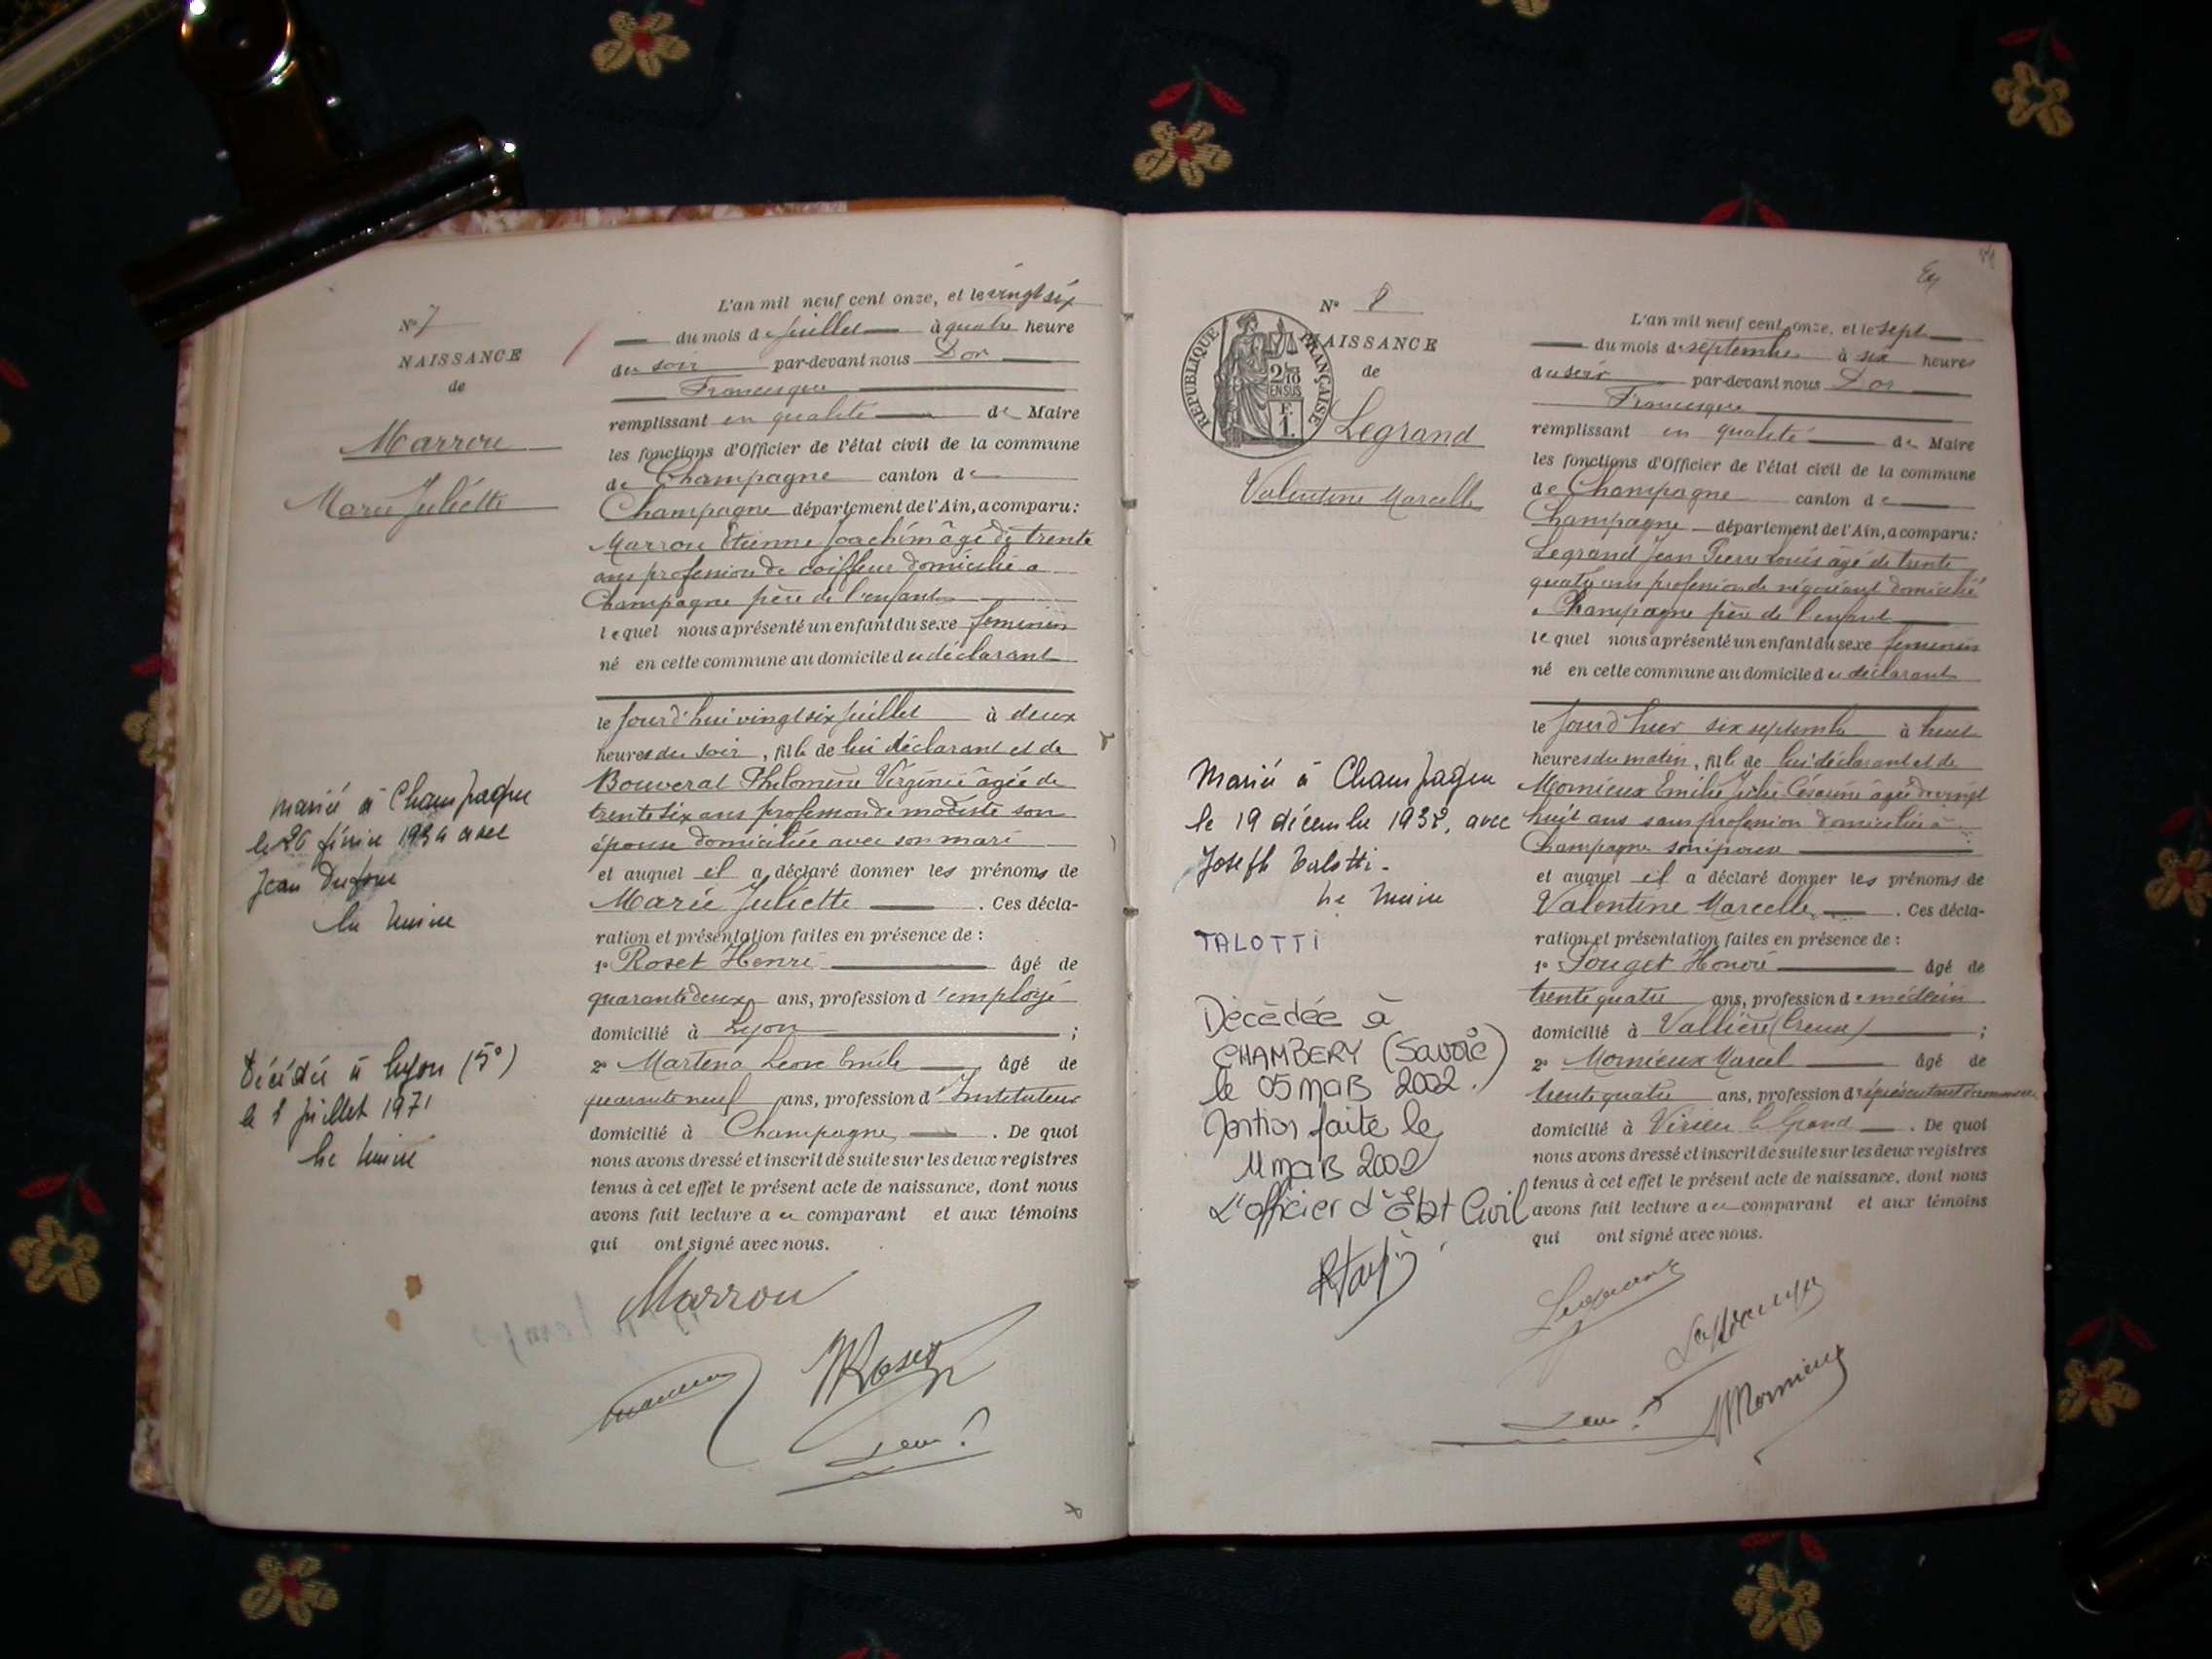 N° 7
NAISSANCE
de
Marrou
Marie Juliette
L'an mil neuf cent onze, et le vingt six
du mois de juillet à quatre heure
du soir par-devant nous Dor
Francisque
remplissant en qualité de Maire
les fonctions d'Officier de l'état civil de la commune
de Champagne canton de
Champagne département de l'Ain, a comparu:
Marrou Etienne Joachim âgé de trente
ans profession de coiffeur domicilié a
Champagne père de l'enfant
lequel nous a présenté un enfant du sexe feminin
né en cette commune au domicile du déclarant
le jourd'hui vingt six juillet à deux
heures du soir, fille de lui déclarant et de
Bouverat Philomène Virginie âgée de
trente six ans profession de modiste son
épouse domiciliée avec son mari
et auquel il a déclaré donner les prénoms de
Marie Juliette. Ces décla-
ration et présentation faites en présence de:
1° Roset Henri âgé de
quarante deux ans, profession d'employé
domicilié à Lyon;
2° Martena Emile âgé de
quarante neuf ans, profession d'Instituteur
domicilié à Champagne. De quoi
nous avons dressé et inscrit de suite sur les deux registres
tenus à cet effet le présent acte de naissance, dont nous
avons fait lecture au comparant et aux témoins
qui ont signé avec nous.
Marrou
Roset
mariée à Champagne
le 26 février 1934 avec
Jean Dufour
Le Maire
Décédée à Lyon (5°)
le 1 juillet 1971
Le Maire
N° 8
NAISSANCE
de
RÉPUBLIQUE FRANÇAISE
2/10
EN SUS
F.
1.
Legrand
Valentine Marcelle
L'an mil neuf cent onze, et le sept
du mois de septembre à six heures
du soir par-devant nous Dor
Francisque
remplissant en qualité de Maire
les fonctions d'Officier de l'état civil de la commune
de Champagne canton de
Champagne département de l'Ain, a comparu:
Legrand Jean Pierre Louis âgé de trente
quatre ans profession de négociant domicilié
a Champagne père de l'enfant
lequel nous a présenté un enfant du sexe feminin
né en cette commune au domicile du déclarant
le jour d'hier six septembre à huit
heures du matin, fille de lui déclarant et de
Mornieux Emilie Julie Césarine âgée de vingt
huit ans sans profession domiciliée à
Champagne son épouse
et auquel il a déclaré donner les prénoms de
Valentine Marcelle. Ces décla-
ration et présentation faites en présence de:
1° Pouget Honoré âgé de
trente quatre ans, profession de médecin
domicilié à Vallière (Creuse);
2° Mornieux Marcel âgé de
trente quatre ans, profession d représentant de commerce
domicilié à Virieu le Grand. De quoi
nous avons dressé et inscrit de suite sur les deux registres
tenus à cet effet le présent acte de naissance, dont nous
avons fait lecture au comparant et aux témoins
qui ont signé avec nous.
Legrand
Mornieux
Mariée à Champagne
le 19 décembre 1932, avec
Joseph Talotti-
Le Maire
TALOTTI
Décédée à
CHAMBERY (Savoie)
le 05 mars 2002.
Mention faite le
11 mars 2002
L'officier d'Etat Civil